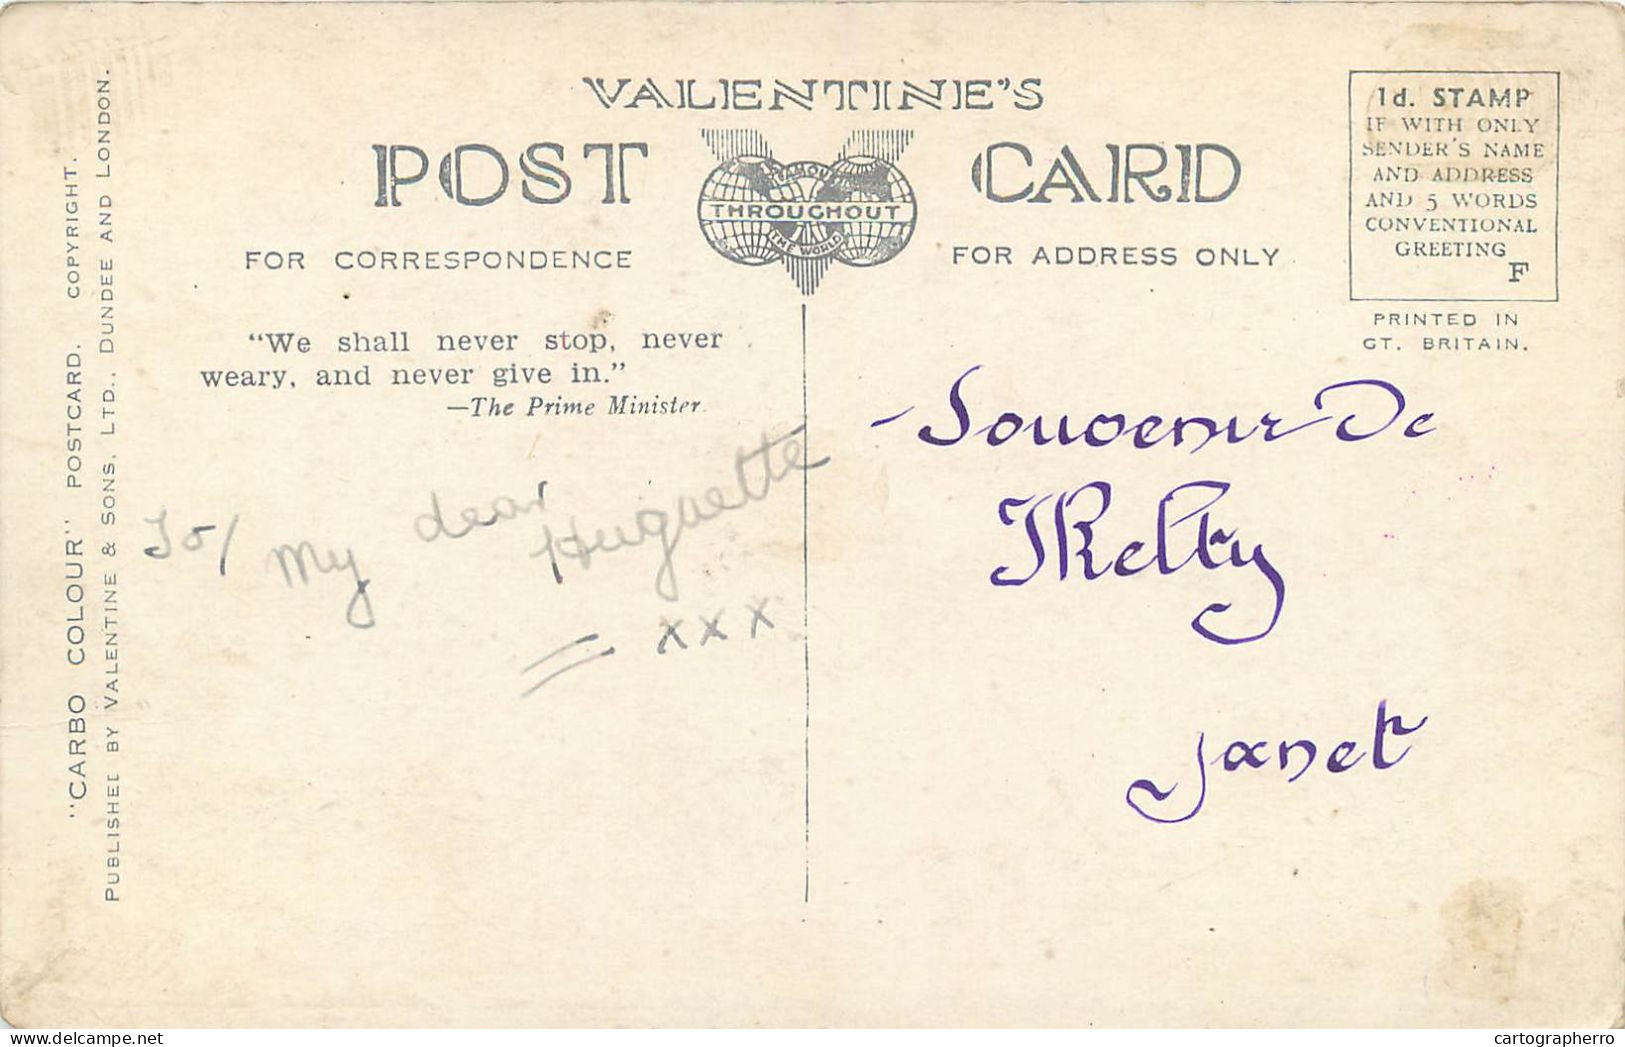 VALENTINE'S
POST CARD
FAMOUS
THROUGHOUT
THE WORLD
FOR CORRESPONDENCE
FOR ADDRESS ONLY
1d. STAMP
IF WITH ONLY
SENDER'S NAME
AND ADDRESS
AND 5 WORDS
CONVENTIONAL
GREETING
F
PRINTED IN
GT. BRITAIN.
"We shall never stop, never
weary, and never give in."
—The Prime Minister.
To/ My dear Huguette
xxx
Souvenir De
Ketty
Janet
"CARBO COLOUR" POSTCARD. COPYRIGHT.
PUBLISHED BY VALENTINE & SONS, LTD., DUNDEE AND LONDON.
cartographerro